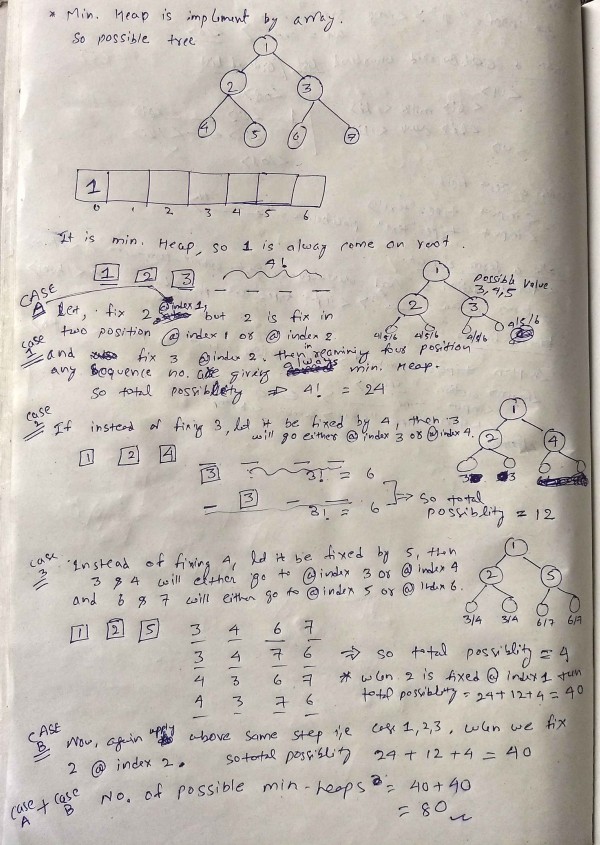 * Min. Heap is implment by array.
So possible tree
1
2 3
4 5 6 7
1
0 1 2 3 4 5 6
It is min. Heap, so 1 is alway come on root.
1 2 3 4!
CASE A Let, fix 2 @index 1, but 2 is fix in
two position @ index 1 or @ index 2
case 1 and fix 3 @index 2. then in reamining four position
any sequence no. are giving always min. Heap.
So total possiblity ⇒ 4! = 24
1
Possible value
3,4,5
2 3
4/5/6 4/5/6 4/5/6 4/5/6
case 2 If instead of fixing 3, let it be fixed by 4, then 3
will go either @ index 3 or @ index 4.
1 2 4
3 3! = 6
3 3! = 6
⇒ So total
possiblity = 12
1
2 4
3 3
case 3 Instead of fixing 4, let it be fixed by 5, then
3 & 4 will either go to @index 3 or @ index 4
and 6 & 7 will either go to @index 5 or @ index 6.
1
2 5
3/4 3/4 6/7 6/7
1 2 5 3 4 6 7
3 4 7 6 ⇒ so total possiblity = 4
4 3 6 7 * when 2 is fixed @ index 1 then
4 3 7 6 total possiblity = 24+12+4 = 40
CASE B Now, again apply above same step i.e case 1,2,3, when we fix
2 @ index 2. so total possiblity 24 + 12 + 4 = 40
case A + case B No. of possible min-heaps = 40 + 40
= 80